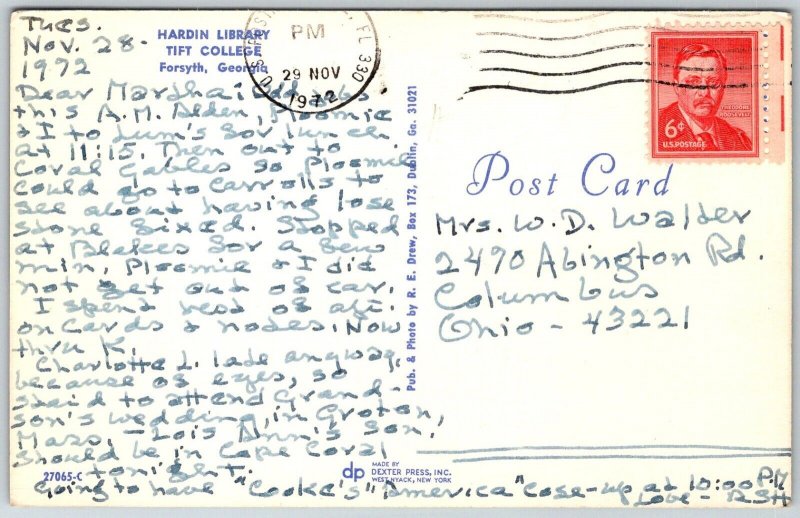 Tues.
Nov. 28-
1972
HARDIN LIBRARY
TIFT COLLEGE
Forsyth, Georgia
Dear Martha: Odd jobs
this A.M. Alden, Ploomie
+ I to Lum's for lunch
at 11:15. Then out to
Coral Gables so Ploomie
could go to Carrolls to
see about having lose
stone fixed. Stopped
at Blakes for a few
min, Ploomie + I did
not get out of car.
I spent rest of aft.
on cards + notes. Now
thru K.
Charlotte L. late anyway,
because of eyes, so
staid to attend Grand-
son's wedding, in Groton,
Mass, - Lois Ann's son.
Should be in Cape Coral
tonight.
Going to have "Cooke's" "America" close-up at 10:00 P.M.
Love - RSH
27065-C
Pub. & Photo by R. E. Drew, Box 173, Dublin, Ga. 31021
dp
MADE BY
DEXTER PRESS, INC.
WEST NYACK, NEW YORK
PM
FL 330
29 NOV
1972
THEODORE
ROOSEVELT
6¢
U.S. POSTAGE
Post Card
Mrs. W. D. Walter
2490 Abington Rd.
Columbus
Ohio - 43221